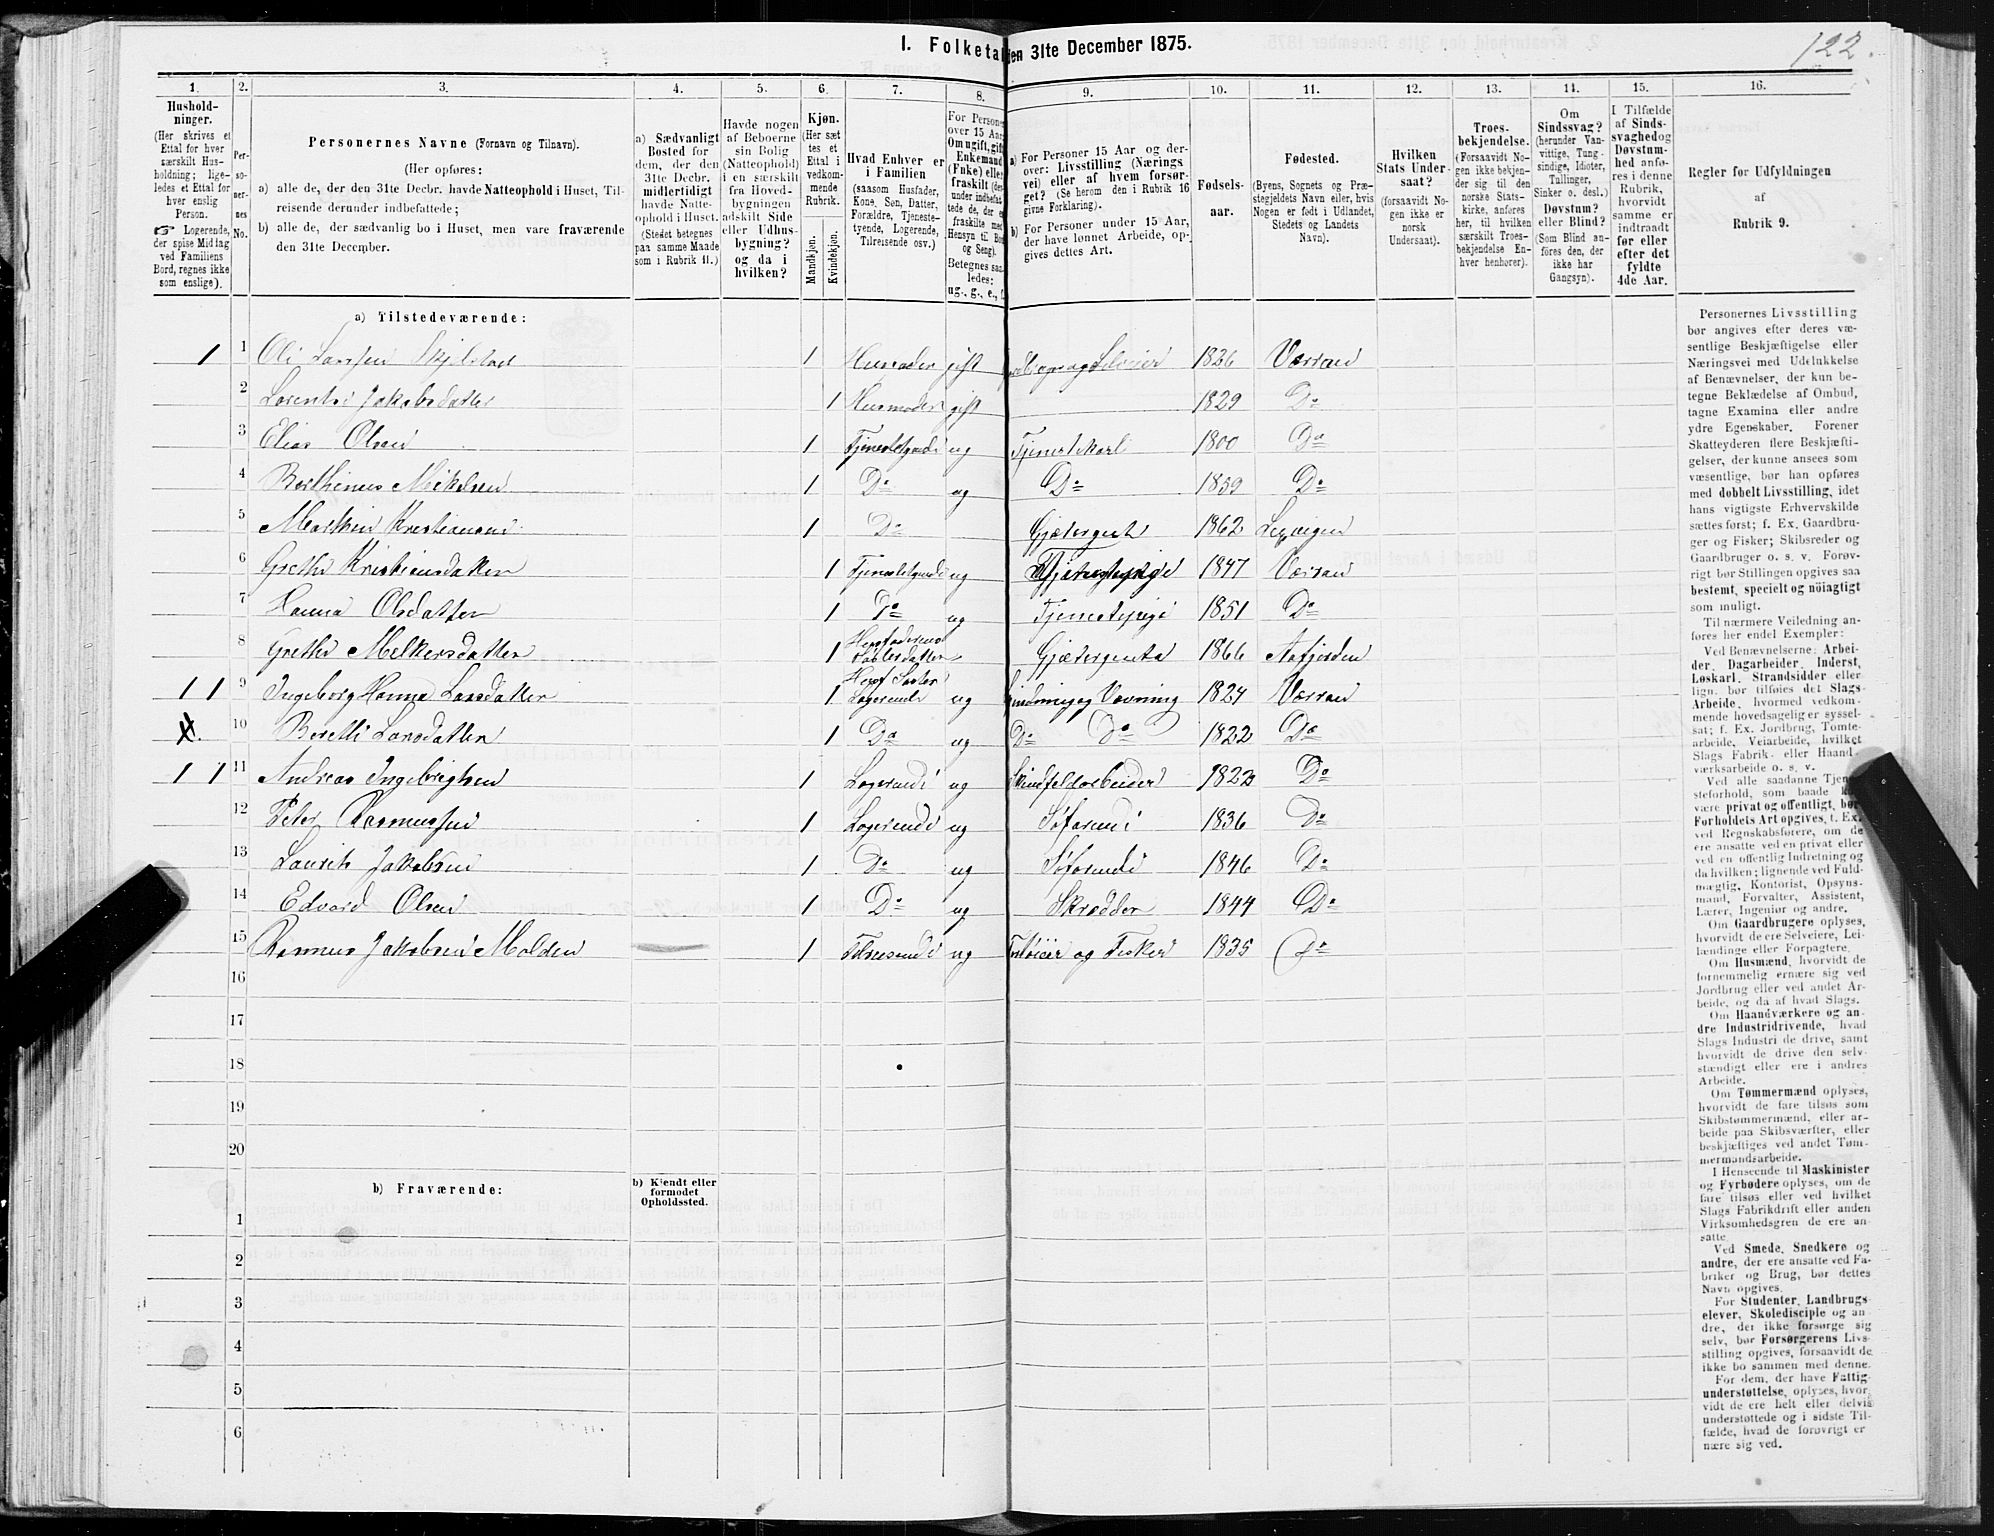 I. Folketal den 31te December 1875.
122.
1. 2. 3. 4. 5. 6. 7. 8. 9. 10. 11. 12. 13. 14. 15. 16.
Hushold-
ninger.
(Her skrives et
Ettal for hver
særskilt Hus-
holdning; lige-
ledes et Ettal for
hver enslig
Person.
☞ Logerende,
der spise Middag
ved Familiens
Bord, regnes ikke
som enslige).
Per-
so-
ner-
nes
No.
Personernes Navne (Fornavn og Tilnavn).
(Her opføres:
a) alle de, der den 31te Decbr. havde Natteophold i Huset, Til-
reisende derunder indbefattede;
b) alle de, der sædvanlig bo i Huset, men vare fraværende
den 31te December.
a) Sædvanligt
Bosted for
dem, der den
31te Decbr.
midlertidigt
havde Natte-
ophold i Huset.
(Stedet betegnes
paa samme Maade
som i Rubrik 11.)
Havde nogen
af Beboerne
sin Bolig
(Natteophold)
i en særskilt
fra Hoved-
bygningen
adskilt Side
eller Udhus-
bygning?
og da i
hvilken?
Kjøn.
(Her sæt
tes et
Ettal i
vedkom-
mende
Rubrik.
Mandkjøn.
Kvindekjøn.
Hvad Enhver er
i Familien
(saasom Husfader,
Kone, Søn, Datter,
Forældre, Tjeneste-
tyende, Logerende,
Tilreisende osv.)
For Persone
over 15 Aar
Om ugift, gift
Enkemand
(Enke) elle
fraskilt (de
under indbefat-
tede de, der e
fraskilte med
Hensyn til Bo
og Seng).
Betegnes saa
ledes:
ug., g., e., f.
a) For Personer 15 Aar og der-
over: Livsstilling (Nærings
vei) eller af hvem forsør-
get? (Se herom den i Rubrik 16
givne Forklaring).
b) For Personer under 15 Aar,
der have lønnet Arbeide, op-
gives dettes Art.
Fødsels-
aar.
Fødested.
(Byens, Sognets og Præ-
stegjeldets Navn eller, hvis
Nogen er født i Udlandet,
Stedets og Landets
Navn).
Hvilken
Stats Under-
saat?
(forsaavidt No-
gen ikke er
norsk
Undersaat).
Troes-
bekjendelse.
(Forsaavidt No-
gen ikke bekjen-
der sig til den
norske Stats-
kirke, anføres
her, til hvilken
særskilt Troes-
bekjendelse En-
hver henhører).
Om
Sindssvag?
(herunder Van-
vittige, Tung-
sindige, Idioter,
Tullinger,
Sinker o. desl.)
Døvstum?
eller Blind?
(Som Blind an-
føres den, der
ikke har
Gangsyn).
I Tilfælde
af Sinds-
svaghed og
Døvstum-
hed anfø-
res i denne
Rubrik,
hvorvidt
samme er
indtraadt
før eller
efter det
fyldte
4de Aar.
Regler for Udfyldningen
af
Rubrik 9.
a) Tilstedeværende:
1 1 Ole Larssen Skjelstad 1 Husfader gift 1826 Værran
2 Lorentse Jakobsdatter 1 Husmoder gift 1829 Do
3 Elias Olsen 1 Tjenestetyende ug Tjenestekarl 1800 Do
4 Berthinus Mikelsen 1 Do ug Do 1859 Do
5 Martin Kristiansen 1 Do Gjætergut 1862 Lexvigen
6 Grethe Kristiansdatter 1 Tjenestetyende ug 1847 Værran
7 Hanna Olsdatter 1 Do ug Tjenestepige 1851 Do
8 Grethe Melkersdatter 1 Husfaderens Gjætergenta 1866 Aafjorden
1 1 9 Ingeborg Hanna Larsdatter 1 Husf Søster Logerende ug Spindning og Vævning 1824 Værran
10 Berethe Larsdatter 1 Do ug Do Do 1822 Do
1 1 11 Andreas Ingebrigtsen 1 Logerende ug Skindfeldarbeider 1822 Do
12 Peter Rasmussen 1 Logerende ug Søfarende 1836 Do
13 Laurits Jakobsen 1 Do ug Søfarende 1846 Do
14 Edvard Olsen 1 Do ug Skrædder 1844 Do
15 Rasmus Jakobsen Molden 1 Tilreisende ug og Fisker 1835 Do
16
17
18
19
20
b) Fraværende:
b) Kjendt eller
formodet
Opholdssted.
1
2
3
4
5
6
Personernes Livsstilling
bør angives efter deres væ-
sentlige Beskjæftigelse eller
Næringsvei med Udelukkelse
af Benævnelser, der kun be-
tegne Beklædelse af Ombud,
tagne Examina eller andre
ydre Egenskaber. Forener
Skatteyderen flere Beskjæfti-
gelser, der kunne ansees som
væsentlige, bør han opføres
med dobbelt Livsstilling, idet
hans vigtigste Erhvervskilde
sættes først; f. Ex. Gaardbru-
ger og Fisker; Skibsreder og
Gaardbruger o. s. v. Forøv-
rigt bør Stillingen opgives saa
bestemt, specielt og nöiagtigt
som muligt.
Til nærmere Veiledning an-
føres her endel Exempler:
Ved Benævnelserne: Arbei-
der, Dagarbeider, Inderst,
Løskarl, Strandsidder eller
lign. bør tilføies det Slags
Arbeide, hvormed vedkom-
mende hovedsagelig er syssel-
sat; f. Ex. Jordbrug, Tomte-
arbeide, Veiarbeide, hvilket
Slags Fabrik- eller Haand-
værksarbeide o. s. v.
Ved alle saadanne Tjene-
steforhold, som baade kan
være privat og offentligt, bør
Forholdets Art opgives, t. Ex.
ved Regnskabsførere, om de
ere ansatte ved en privat eller
ved en offentlig Indretning og
da hvilken; lignende ved Fuld-
mægtig, Kontorist, Opsyns-
mand, Forvalter, Assistent,
Lærer, Ingeniør og andre.
Om Gaardbrugere oplyses,
hvorvidt de ere Selveiere, Lei-
lændinge eller Forpagtere.
Om Husmænd, hvorvidt de
fornemmelig ernære sig ved
Jordbrug eller ved andet Ar-
beide, og da af hvad Slags.
Om Haandværkere og an-
dre Industridrivende, hvad
Slags Industri de drive, samt
hvorvidt de drive den selv-
stændigt eller ere i andres
Arbeide.
Om Tømmermænd oplyses,
hvorvidt de fare tilsøs som
Skibstømmermænd, eller ar-
beide paa Skibsværfter, eller
beskjæftiges ved andet Tøm-
mermandsarbeide.
I Henseende til Maskinister
og Fyrbødere oplyses, om de
fare tilsøs eller ved hvilket
Slags Fabrikdrift eller anden
Virksomhedsgren de ere an-
satte.
Ved Smede, Snedkere og
andre, der ere ansatte ved Fa-
briker og Brug, bør dettes
Navn opgives.
For Studenter, Landbrugs-
elever, Skoledisciple og an-
dre, der ikke forsørge sig
selv, bør Forsørgerens Livs-
stilling opgives, forsaavidt de
ikke bo sammen med denne.
For dem, der have Fattig-
understøttelse, oplyses, hvor-
vidt de ere helt eller delvis
understøttede og i sidste Til-
fælde, hvad de forøvrigt er
nære sig ved.